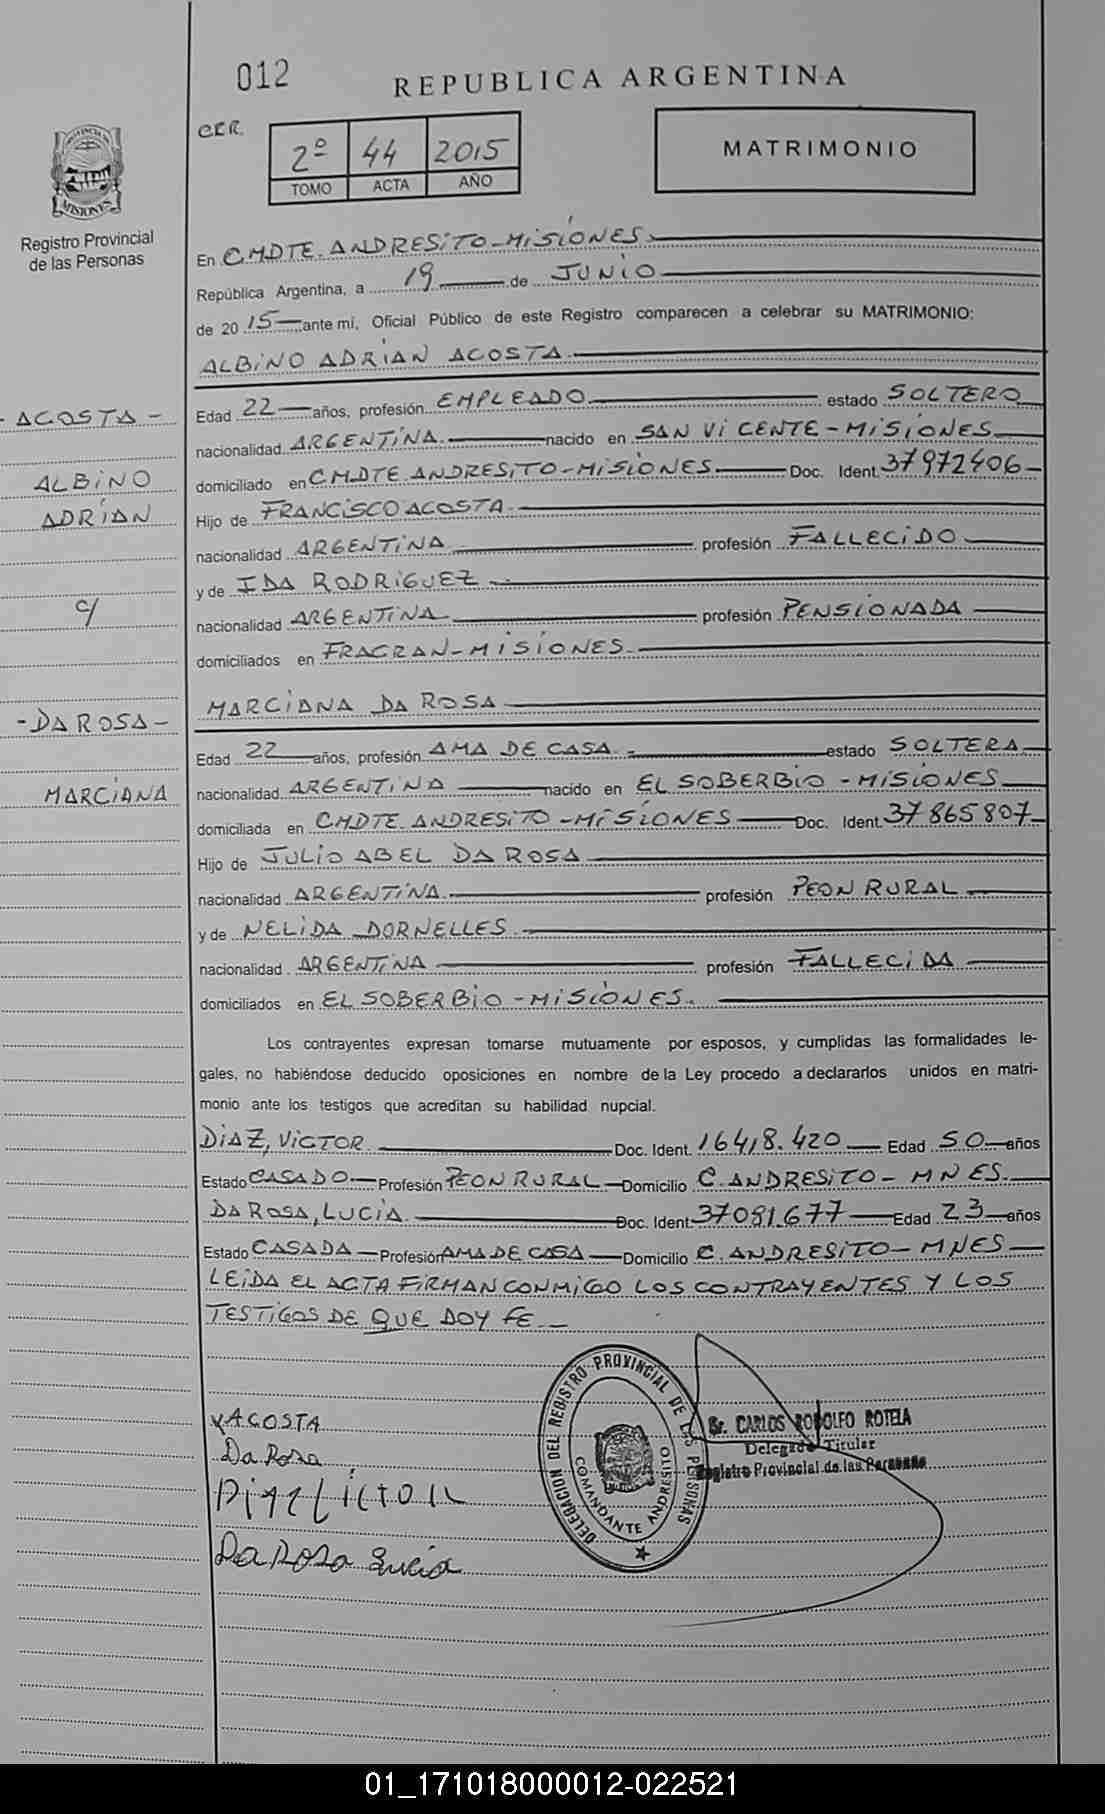 012
REPUBLICA ARGENTINA
CER.
2º 44 2015
TOMO ACTA AÑO
MATRIMONIO
MISIONES
Registro Provincial
de las Personas
En CMDTE. ANDRESITO-MISIONES
República Argentina, a 19 de JUNIO
de 2015 ante mi, Oficial Público de este Registro comparecen a celebrar su MATRIMONIO:
ALBINO ADRIAN ACOSTA
- ACOSTA -
Edad 22 años, profesión EMPLEADO estado SOLTERO
nacionalidad ARGENTINA. nacido en SAN VICENTE-MISIONES
ALBINO
domiciliado en CMDTE ANDRESITO-MISIONES Doc. Ident. 37972406-
ADRIAN
Hijo de FRANCISCO ACOSTA.
nacionalidad ARGENTINA profesión FALLECIDO
y de IDA RODRIGUEZ
c/
nacionalidad ARGENTINA profesión PENSIONADA
domiciliados en FRACRAN-MISIONES.
MARCIANA DA ROSA
-DA ROSA-
Edad 22 años, profesión AMA DE CASA. estado SOLTERA
MARCIANA
nacionalidad ARGENTINA nacido en EL SOBERBIO-MISIONES
domiciliada en CMDTE ANDRESITO-MISIONES Doc. Ident. 37865807-
Hijo de JULIO ABEL DA ROSA
nacionalidad ARGENTINA. profesión PEON RURAL
y de NELIDA DORNELLES.
nacionalidad ARGENTINA profesión FALLECIDA
domiciliados en EL SOBERBIO-MISIONES.
Los contrayentes expresan tomarse mutuamente por esposos, y cumplidas las formalidades le-
gales, no habiéndose deducido oposiciones en nombre de la Ley procedo a declararlos unidos en matri-
monio ante los testigos que acreditan su habilidad nupcial.
DIAZ, VICTOR Doc. Ident. 16418.420 Edad 50 años
Estado CASADO Profesión PEON RURAL Domicilio C. ANDRESITO-MNES.
DA ROSA, LUCIA. Doc. Ident. 37081.677 Edad 23 años
Estado CASADA Profesión AMA DE CASA Domicilio C. ANDRESITO-MNES
LEIDA EL ACTA FIRMAN CONMIGO LOS CONTRAYENTES Y LOS
TESTIGOS DE QUE DOY FE.-
DELEGACION DEL REGISTRO PROVINCIAL DE LAS PERSONAS
COMANDANTE ANDRESITO
Sr. CARLOS RODOLFO ROTELA
Delegado Titular
Registro Provincial de las Personas
ACOSTA
Da Rosa
Diaz Victor
Da Rosa Lucia
01_171018000012-022521